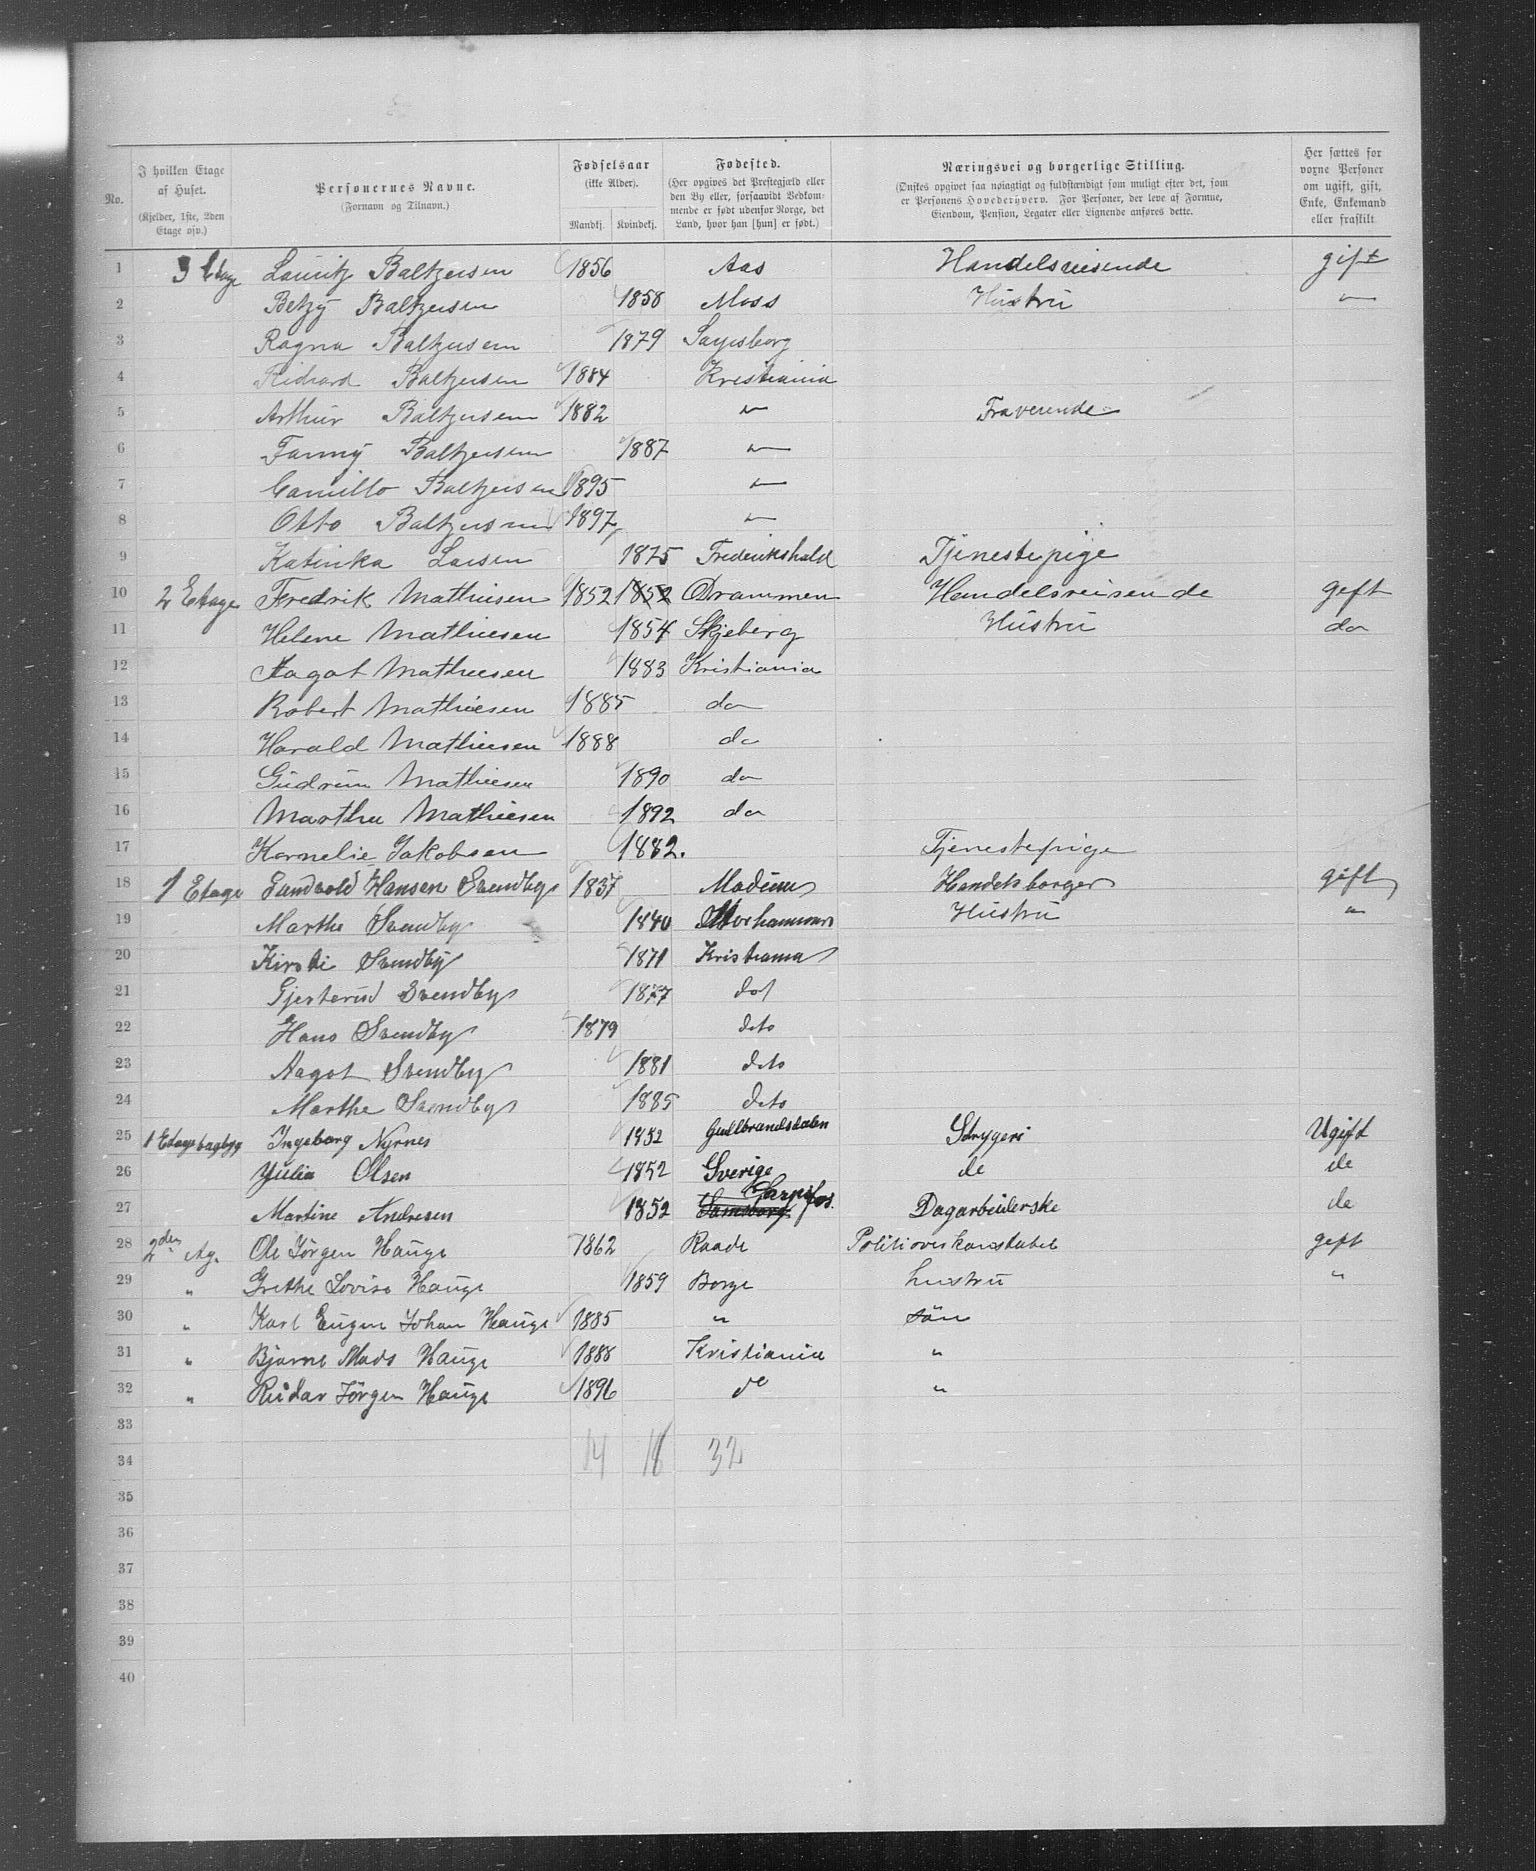 No.
I hvilken Etage af Huset. (Kjelder, 1ste, 2den Etage osv.)
Personernes Navne. (Fornavn og Tilnavn.)
Fødselsaar (ikke Alder). Mandkj. Kvindekj.
Fødested. (Her opgives det Prestegjæld eller den By eller, forsaavidt Vedkommende er født udenfor Norge, det Land, hvor han [hun] er født.)
Næringsvei og borgerlige Stilling. (Ønskes opgivet saa nøiagtigt og fuldstændigt som muligt efter det, som er Personens Hovederhverv. For Personer, der leve af Formue, Eiendom, Pension, Legater eller Lignende anføres dette.)
Her sættes for voxne Personer om ugift, gift, Enke, Enkemand eller fraskilt
1 3 Etage Lauritz Baltzersen 1856 Aas Handelsreisende gift
2 Betzy Baltzersen 1858 Moss Hustru "
3 Ragna Baltzersen 1879 Sarpsborg
4 Richard Baltzersen 1884 Kristiania
5 Arthur Baltzersen 1882 " Fraverende
6 Fanny Baltzersen 1887 "
7 Camillo Baltzersen 1895 "
8 Otto Baltzersen 1897 "
9 Katinka Larsen 1875 Frederikshald Tjenestepige
10 2 Etage Fredrik Mathiesen 1852 1852 Drammen Handelsreisende geft
11 Helene Mathiesen 1854 Skjeberg Hustru do
12 Aagot Mathiesen 1883 Kristiania
13 Robert Mathiesen 1885 do
14 Harald Mathiesen 1888 do
15 Gudrun Mathiesen 1890 do
16 Martha Mathiesen 1892 do
17 Kornelie Jakobsen 1882. Tjenestepige
18 1 Etage Hansen Svendby 1837 Modum Handelsborger gift
19 Marthe Svendby 1840 Hustru "
20 Kirsti Svendby 1871 Kristiania
21 Gjerterud Svendby 1877 dot
22 Hans Svendby 1879 deto
23 Aagot Svendby 1881 deto
24 Marthe Svendby 1885 deto
25 1 Etage bagbyg Ingeborg Nyrnes 1852 Gudbrandsdalen Strygeri Ugift
26 Yulia Olsen 1852 Sverige de de
27 Martine Andresen 1852 Sarpsfos. Dagarbeiderske de
28 2den Ag. Ole Jørgen Hauge 1862 Raade Politioverkonstabel geft
29 " Grethe Lovise Hauge 1859 Borge hustru "
30 " Karl Eugen Johan Hauge 1885 " søn
31 " Bjarne Mads Hauge 1888 Kristiania "
32 " Reidar Jørgen Hauge 1896 do "
33
34 14 18 32
35
36
37
38
39
40